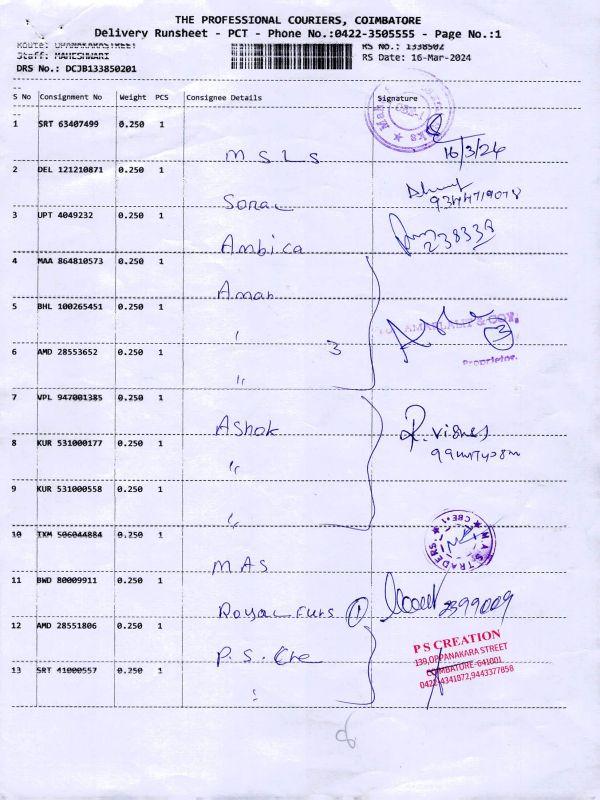 THE PROFESSIONAL COURIERS, COIMBATORE
Delivery Runsheet - PCT - Phone No.:0422-3505555 - Page No.:1
Route: OPANAKARASTREET RS No.: 1338502
Staff: MAHESHWARI RS Date: 16-Mar-2024
DRS No.: DCJB133850201
S No Consignment No Weight PCS Consignee Details Signature
1 SRT 63407499 0.250 1
M S L S 16/3/24
2 DEL 121210871 0.250 1
Sonal
3 UPT 4049232 0.250 1
Ambica 238338
4 MAA 864810573 0.250 1
Aman
5 BHL 100265451 0.250 1
" & COY,
3
6 AMD 28553652 0.250 1
" Proprietor.
7 VPL 947001385 0.250 1
Ashok R. Vignes
8 KUR 531000177 0.250 1
"
9 KUR 531000558 0.250 1
"
10 TXM 506044884 0.250 1
M.A.S M A S TRADERS CBE-1
11 BWD 80009911 0.250 1
Royal Furs 1 2399009
12 AMD 28551806 0.250 1
P. S. Cre
P S CREATION
139, OPPANAKARA STREET
COIMBATORE-641001
0422-4341872,9443377858
13 SRT 41000557 0.250 1
"
8